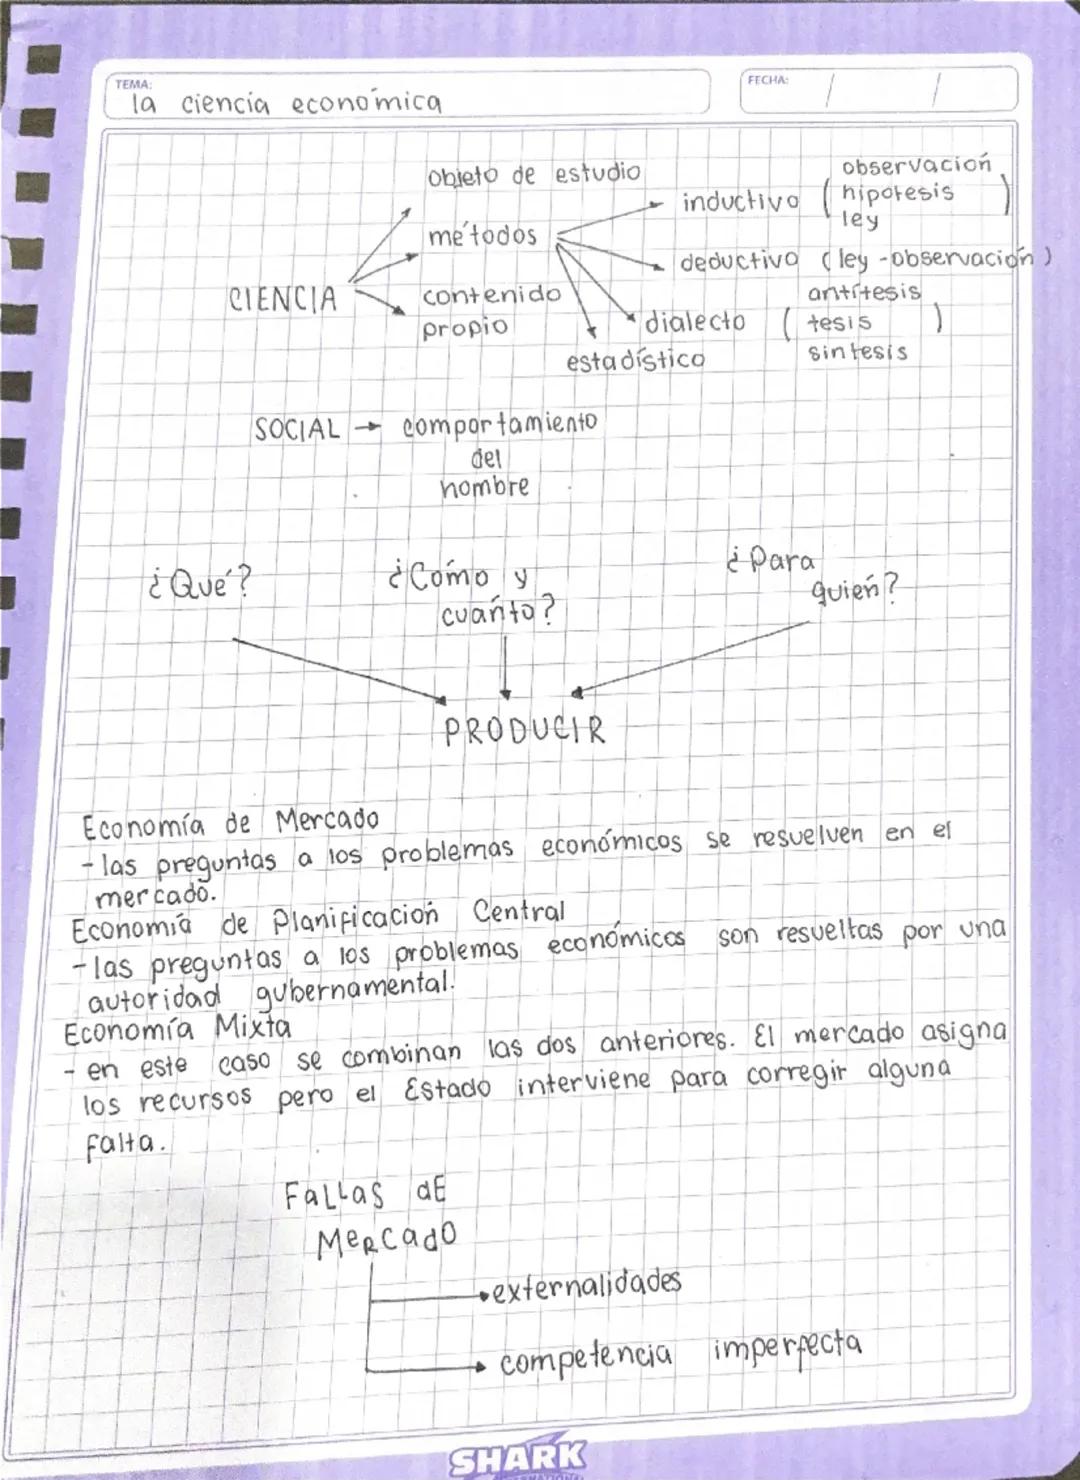 TEMA:
la ciencia económica
FECHA:
objeto de estudio
métodos
contenido
propio
CIENCIA
inductivo (observación
hipotesis
ley)
deductivo (ley - observación)
dialecto (antítesis
tesis
sintesis)
estadístico
SOCIAL → comportamiento
del
hombre
¿Qué?
¿Cómo y
cuánto?
¿Para
quién?
PRODUCIR
Economía de Mercado
- las preguntas a los problemas económicos se resuelven en el
mercado.
Economía de Planificación Central
- las preguntas a los problemas económicos son resueltas por una
autoridad gubernamental.
Economía Mixta
- en este caso se combinan las dos anteriores. El mercado asigna
los recursos pero el Estado interviene para corregir alguna
falta.
FaLLas dE
MeRcadO
externalidades
competencia imperfecta
SHARK